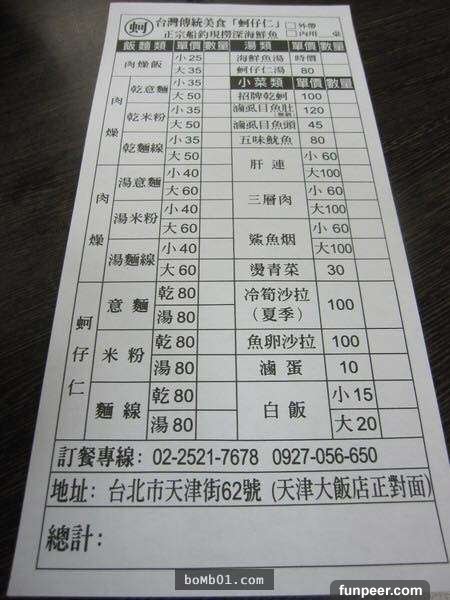 蚵 台灣傳統美食「蚵仔仁」 □外帶
正宗船釣現撈深海鮮魚 □內用 桌
飯麵類 單價 數量 湯類 單價 數量
肉燥飯 小25 海鮮魚湯 時價
大35 蚵仔仁湯 80
肉燥 乾意麵 小35 小菜類 單價 數量
大50 招牌乾蚵 100
乾米粉 小35 滷虱目魚肚 120
大50 滷虱目魚頭 45
乾麵線 小35 五味魷魚 80
大50 肝連 小60
肉燥 湯意麵 小40 大100
大60 三層肉 小60
湯米粉 小40 大100
大60 鯊魚烟 小60
湯麵線 小40 大100
大60 燙青菜 30
蚵仔仁 意麵 乾80 冷筍沙拉(夏季) 100
湯80
米粉 乾80 魚卵沙拉 100
湯80 滷蛋 10
麵線 乾80 白飯 小15
湯80 大20
訂餐專線: 02-2521-7678 0927-056-650
地址: 台北市天津街62號 (天津大飯店正對面)
總計:
boMb01.com
funpeer.com